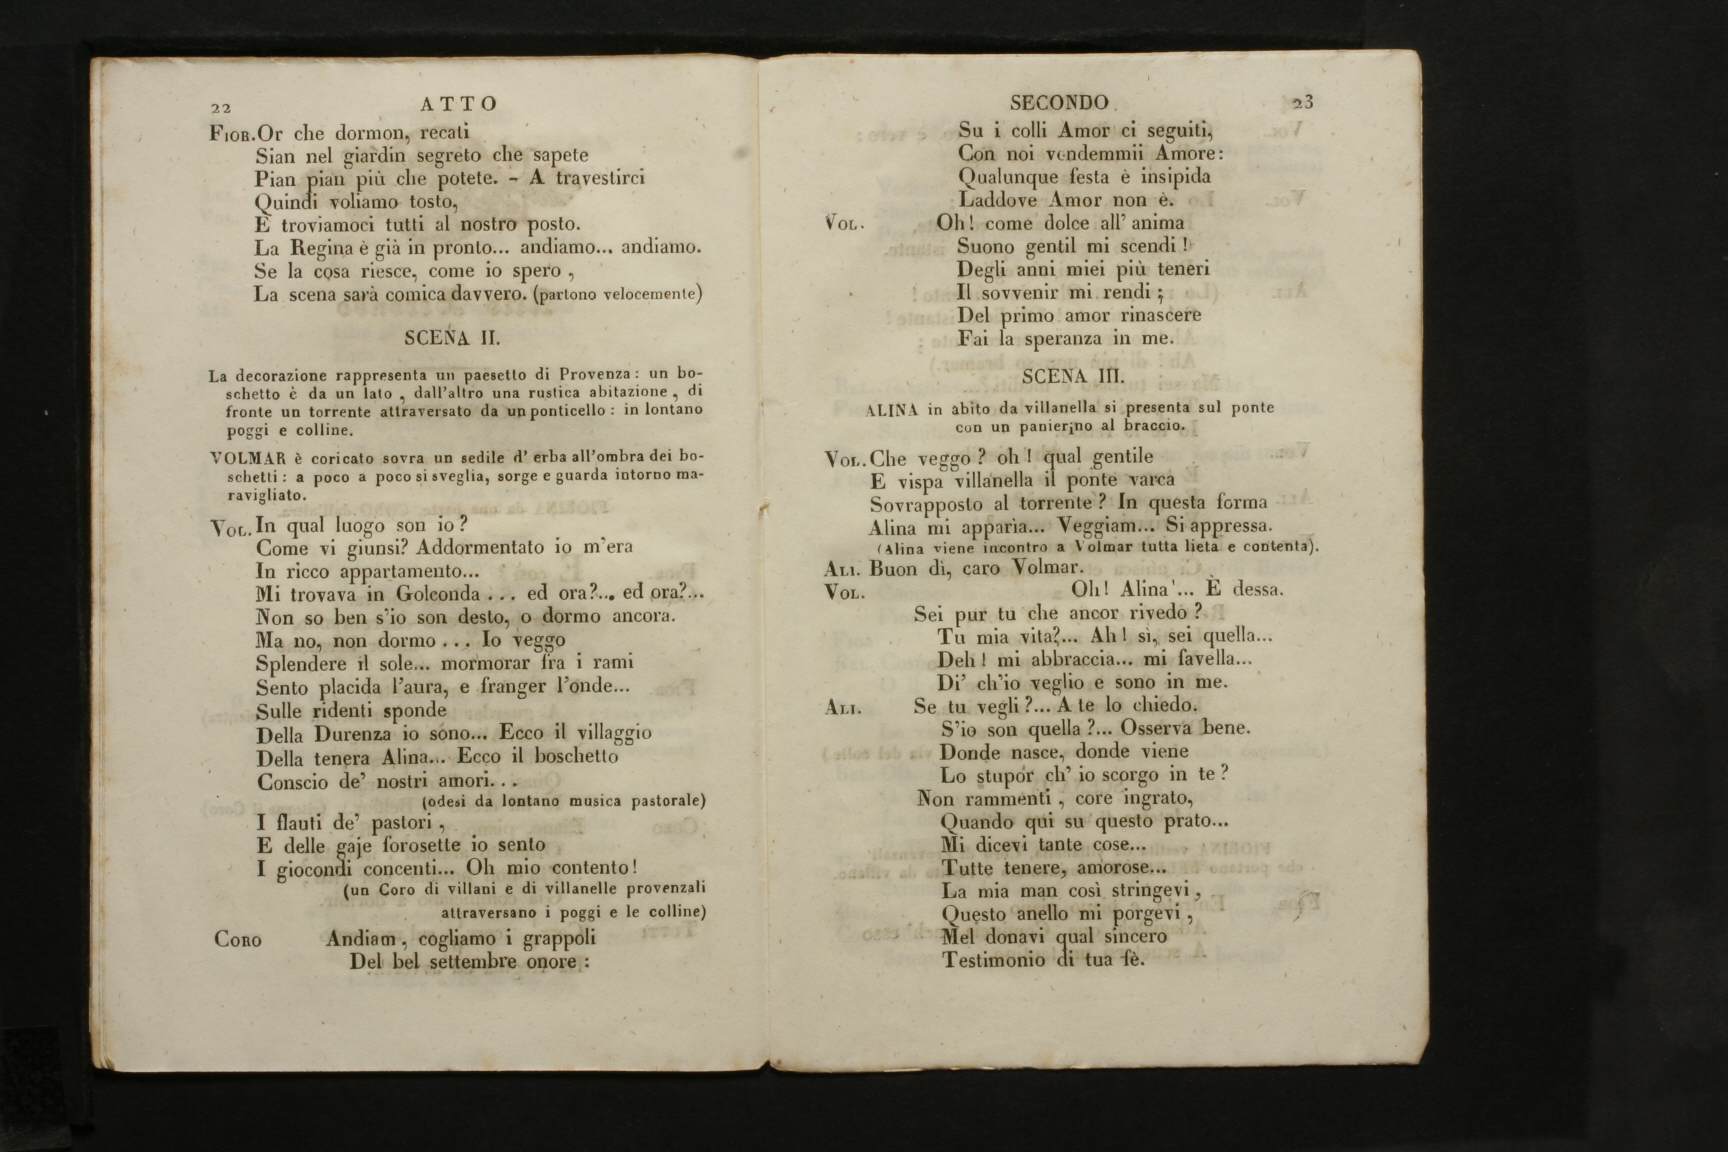 22 ATTO
FIOR. Or che dormon, recati
Sian nel giardin segreto che sapete
Pian pian più che potete. - A travestirci
Quindi voliamo tosto,
E troviamoci tutti al nostro posto.
La Regina è già in pronto... andiamo... andiamo.
Se la cosa riesce, come io spero,
La scena sarà comica davvero. (partono velocemente)
SCENA II.
La decorazione rappresenta un paesetto di Provenza: un bo-
schetto è da un lato, dall'altro una rustica abitazione, di
fronte un torrente attraversato da un ponticello: in lontano
poggi e colline.
VOLMAR è coricato sovra un sedile d'erba all'ombra dei bo-
schetti: a poco a poco si sveglia, sorge e guarda intorno ma-
ravigliato.
VOL. In qual luogo son io?
Come vi giunsi? Addormentato io m'era
In ricco appartamento...
Mi trovava in Golconda... ed ora?... ed ora?...
Non so ben s'io son desto, o dormo ancora.
Ma no, non dormo... Io veggo
Splendere il sole... mormorar fra i rami
Sento placida l'aura, e franger l'onde...
Sulle ridenti sponde
Della Durenza io sono... Ecco il villaggio
Della tenera Alina... Ecco il boschetto
Conscio de' nostri amori...
(odesi da lontano musica pastorale)
I flauti de' pastori,
E delle gaje forosette io sento
I giocondi concenti... Oh mio contento!
(un Coro di villani e di villanelle provenzali
attraversano i poggi e le colline)
CORO Andiam, cogliamo i grappoli
Del bel settembre onore:
SECONDO 23
Su i colli Amor ci seguiti,
Con noi vendemmii Amore:
Qualunque festa è insipida
Laddove Amor non è.
VOL. Oh! come dolce all'anima
Suono gentil mi scendi!
Degli anni miei più teneri
Il sovvenir mi rendi;
Del primo amor rinascere
Fai la speranza in me.
SCENA III.
ALINA in abito da villanella si presenta sul ponte
con un panierino al braccio.
VOL. Che veggo? oh! qual gentile
E vispa villanella il ponte varca
Sovrapposto al torrente? In questa forma
Alina mi apparìa... Veggiam... Si appressa.
(Alina viene incontro a Volmar tutta lieta e contenta).
ALI. Buon dì, caro Volmar.
VOL. Oh! Alina!... È dessa.
Sei pur tu che ancor rivedo?
Tu mia vita?... Ah! sì, sei quella...
Deh! mi abbraccia... mi favella...
Di' ch'io veglio e sono in me.
ALI. Se tu vegli?... A te lo chiedo.
S'io son quella?... Osserva bene.
Donde nasce, donde viene
Lo stupor ch'io scorgo in te?
Non rammenti, core ingrato,
Quando qui su questo prato...
Mi dicevi tante cose...
Tutte tenere, amorose...
La mia man così stringevi,
Questo anello mi porgevi,
Mel donavi qual sincero
Testimonio di tua fè.